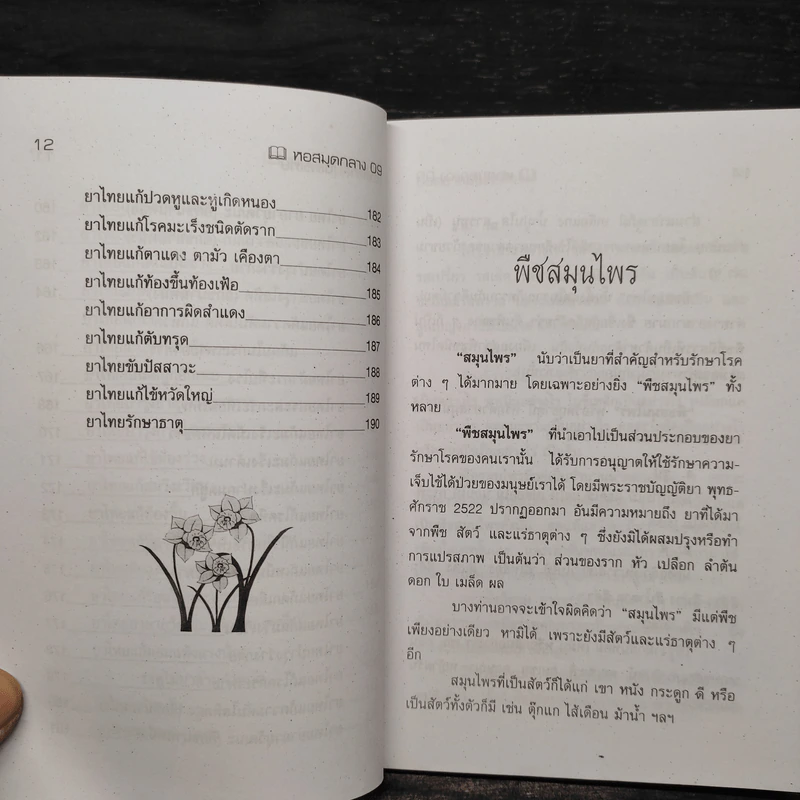 12
หอสมุดกลาง 09
ยาไทยแก้ปวดหูและหูเกิดหนอง 182
ยาไทยแก้โรคมะเร็งชนิดตัดราก 183
ยาไทยแก้ตาแดง ตามัว เคืองตา 184
ยาไทยแก้ท้องขึ้นท้องเฟ้อ 185
ยาไทยแก้อาการผิดสำแดง 186
ยาไทยแก้ตับทรุด 187
ยาไทยขับปัสสาวะ 188
ยาไทยแก้ไข้หวัดใหญ่ 189
ยาไทยรักษาธาตุ 190
พืชสมุนไพร
“สมุนไพร” นับว่าเป็นยาที่สำคัญสำหรับรักษาโรค
ต่าง ๆ ได้มากมาย โดยเฉพาะอย่างยิ่ง “พืชสมุนไพร” ทั้ง
หลาย
“พืชสมุนไพร” ที่นำเอาไปเป็นส่วนประกอบของยา
รักษาโรคของคนเรานั้น ได้รับการอนุญาตให้ใช้รักษาความ-
เจ็บไข้ได้ป่วยของมนุษย์เราได้ โดยมีพระราชบัญญัติยา พุทธ-
ศักราช 2522 ปรากฏออกมา อันมีความหมายถึง ยาที่ได้มา
จากพืช สัตว์ และแร่ธาตุต่าง ๆ ซึ่งยังมิได้ผสมปรุงหรือทำ
การแปรสภาพ เป็นต้นว่า ส่วนของราก หัว เปลือก ลำต้น
ดอก ใบ เมล็ด ผล
บางท่านอาจจะเข้าใจผิดคิดว่า “สมุนไพร” มีแต่พืช
เพียงอย่างเดียว หามิได้ เพราะยังมีสัตว์และแร่ธาตุต่าง ๆ
อีก
สมุนไพรที่เป็นสัตว์ก็ได้แก่ เขา หนัง กระดูก ดี หรือ
เป็นสัตว์ทั้งตัวก็มี เช่น ตุ๊กแก ไส้เดือน ม้าน้ำ ฯลฯ